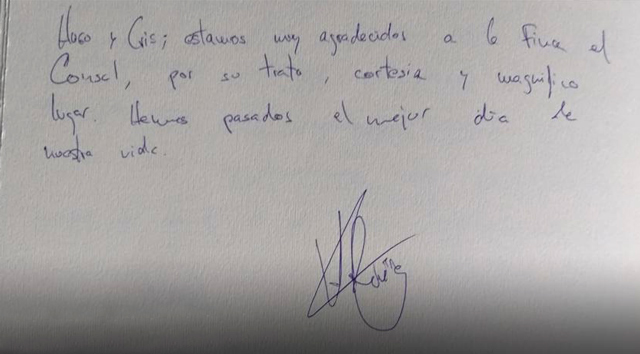 Hugo y Cris; estamos muy agradecidos a la Finca el
Consel, por su trato, cortesia y magnifico
lugar. Hemos pasados el mejor dia de
nuestra vida.